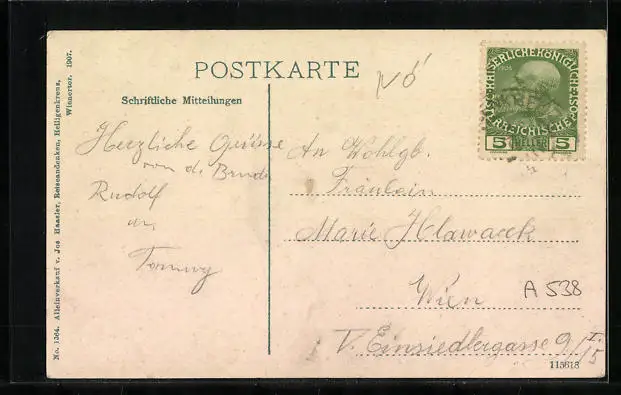 POSTKARTE
Schriftliche Mitteilungen
Herzliche Grüsse
von d. Bruder
Rudolf
Tommy
An Wohlgb.
Fräulein
Marie Hlawacek
Wien
V. Einsiedlergasse 9/I./15
A 538
No. 1364. Alleinverkauf v. Jos Hassler, Reiseandenken, Heiligenkreuz,
Wienertor. 1907.
KAISERLICHE KÖNIGLICHE
ÖSTERREICHISCHE
5 HELLER 5
115618